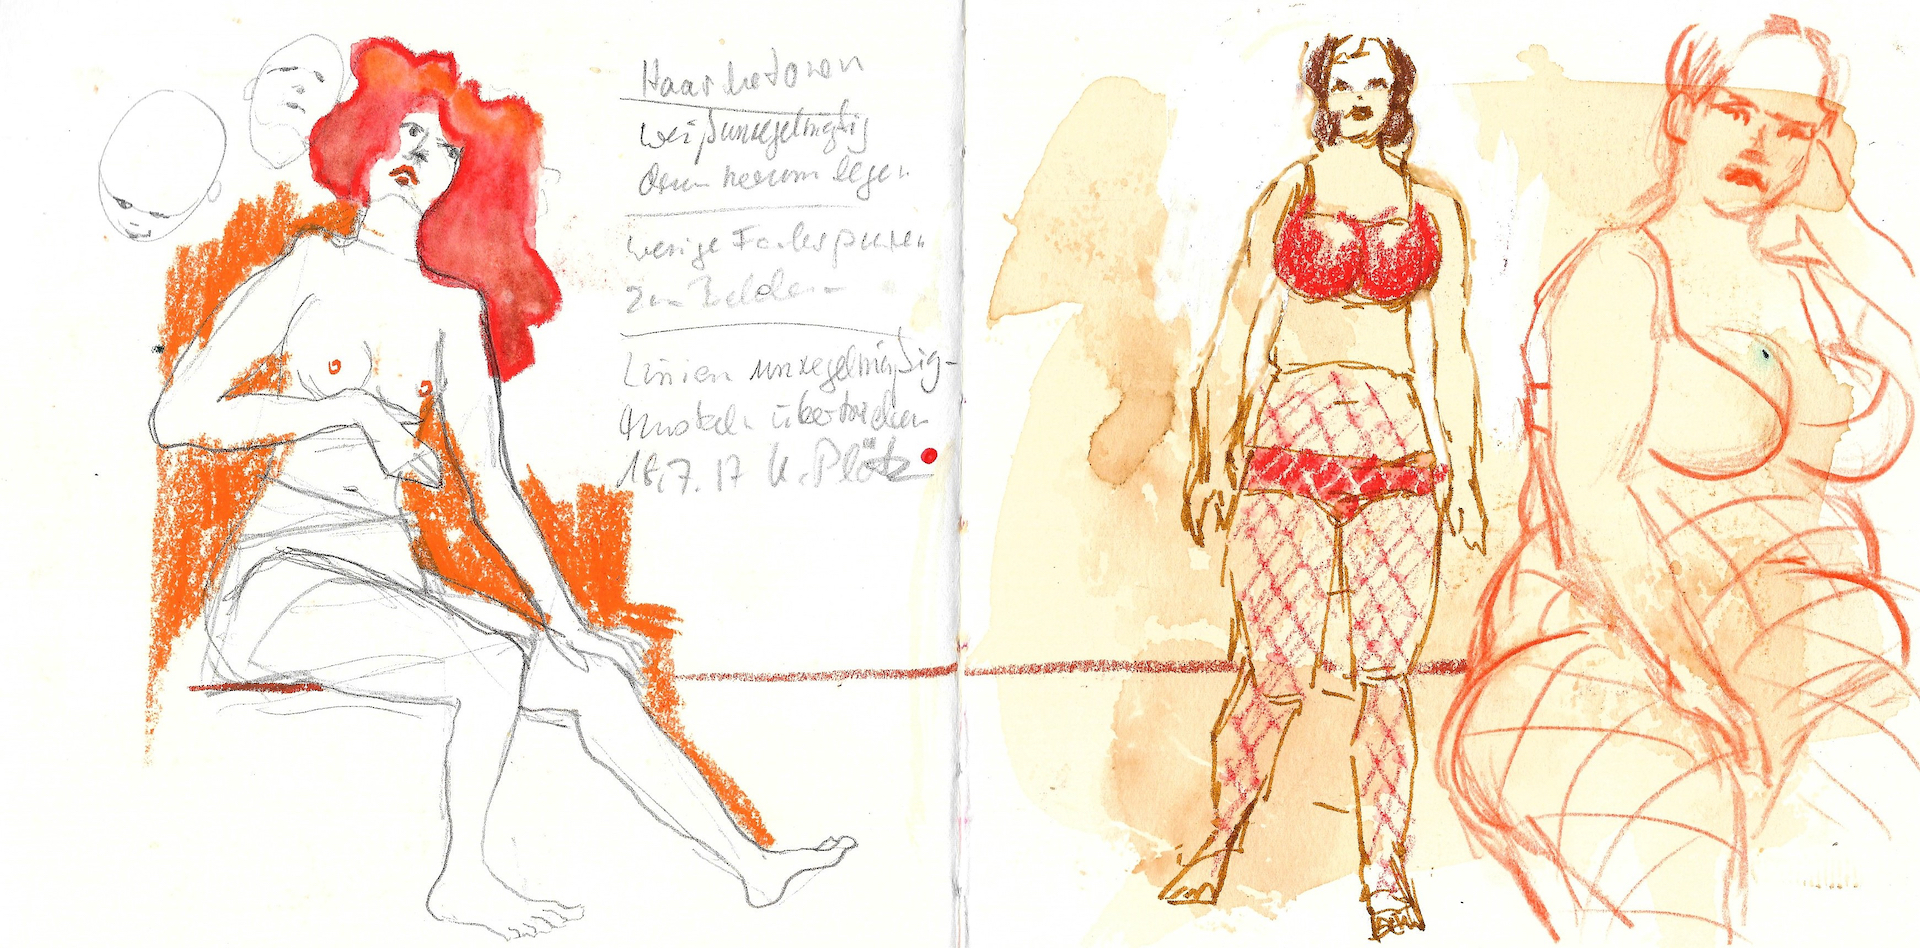 Haar betonen
weiß unregelmäßig
drum herum legen
wenige Farbspuren
zum Bilden
Linien unregelmäßig-
Muskeln übertrieben
18.7.17 K. Plötz